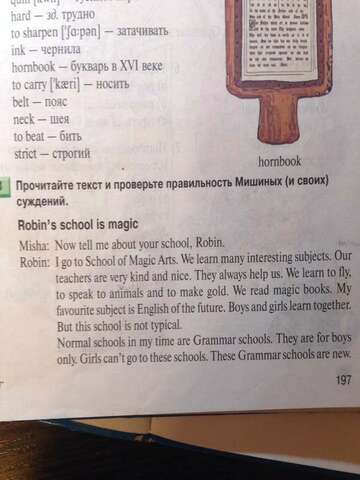 hard — зд. трудно
to sharpen [ˈʃɑːpən] — затачивать
ink — чернила
hornbook — букварь в XVI веке
to carry [ˈkæri] — носить
belt — пояс
neck — шея
to beat — бить
strict — строгий
hornbook
Прочитайте текст и проверьте правильность Мишиных (и своих)
суждений.
Robin's school is magic
Misha: Now tell me about your school, Robin.
Robin: I go to School of Magic Arts. We learn many interesting subjects. Our
teachers are very kind and nice. They always help us. We learn to fly,
to speak to animals and to make gold. We read magic books. My
favourite subject is English of the future. Boys and girls learn together.
But this school is not typical.
Normal schools in my time are Grammar schools. They are for boys
only. Girls can't go to these schools. These Grammar schools are new.
197